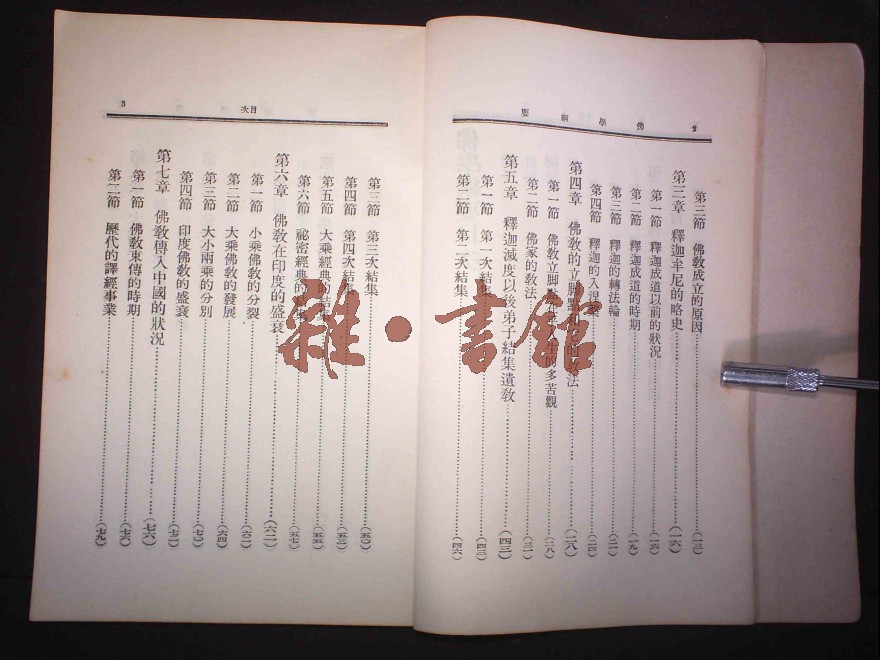 佛學綱要 2
第三節 佛教成立的原因 (一三)
第三章 釋迦牟尼的略史 (一六)
第一節 釋迦成道以前的狀況 (一六)
第二節 釋迦成道的時期 (一九)
第三節 釋迦的轉法輪 (二一)
第四節 釋迦的入涅槃 (二四)
第四章 佛教的立脚點 教法 (二八)
第一節 佛教立脚點在 生的多苦觀 (二八)
第二節 佛家的教法 (三一)
第五章 釋迦滅度以後弟子結集遺教 (四三)
第一節 第一次結集 (四三)
第二節 第二次結集 (四六)
目次 3
第三節 第三次結集 (五〇)
第四節 第四次結集 (五三)
第五節 大乘經典的結集 (五五)
第六節 祕密經典的結集 (五七)
第六章 佛教在印度的盛衰 (六二)
第一節 小乘佛教的分裂 (六二)
第二節 大乘佛教的發展 (六四)
第三節 大小兩乘的分別 (七一)
第四節 印度佛教的盛衰 (七二)
第七章 佛教傳入中國的狀況 (七六)
第一節 佛教東傳的時期 (七六)
第二節 歷代的譯經事業 (七九)
雜·書館